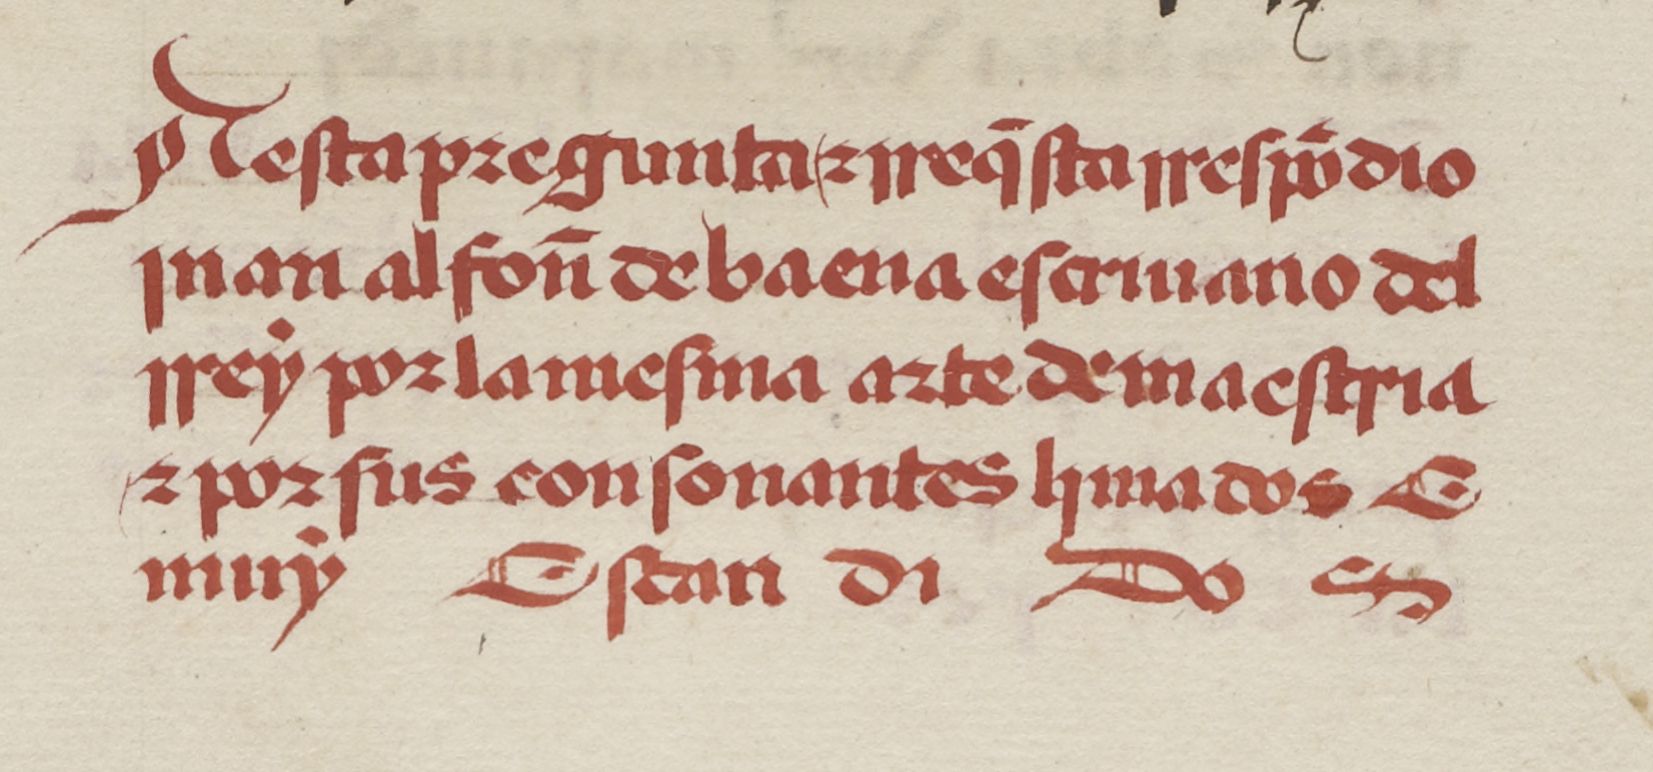 A esta pregunta ⁊ rreq̃sta rrespõdio
juan alfoñ de baena escriuano del
rrey por la mesma arte de maestria
⁊ por sus consonantes limados E
muy Estan di Do S